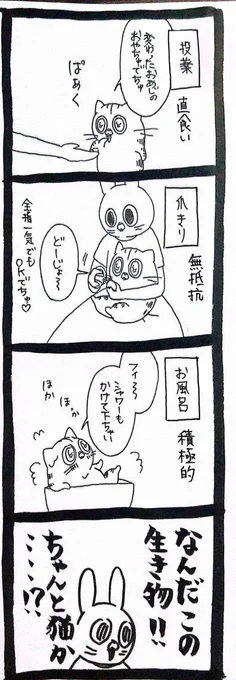 投薬
直食い
変わったおあじの
おやちゅでちゅ
ぱぁく
爪きり
無抵抗
どーじょ〜
全指一気でも
OKでちゅ♡
お風呂
積極的
フィ〜〜
シャワーも
かけて下ちゃい
ほか
ほか
なんだこの
生き物!!
ちゃんと猫か
…!?